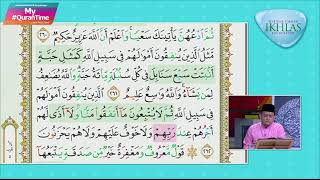 My
#QuranTime
IKHLAS
ثُمَّ ٱدْعُهُنَّ يَأْتِينَكَ سَعْيًا وَٱعْلَمْ أَنَّ ٱللَّهَ عَزِيزٌ حَكِيمٌ ٢٦٠
مَّثَلُ ٱلَّذِينَ يُنفِقُونَ أَمْوَٰلَهُمْ فِى سَبِيلِ ٱللَّهِ كَمَثَلِ حَبَّةٍ
أَنۢبَتَتْ سَبْعَ سَنَابِلَ فِى كُلِّ سُنۢبُلَةٍ مِّا۟ئَةُ حَبَّةٍ وَٱللَّهُ يُضَٰعِفُ
لِمَن يَشَآءُ وَٱللَّهُ وَٰسِعٌ عَلِيمٌ ٢٦١ ٱلَّذِينَ يُنفِقُونَ أَمْوَٰلَهُمْ
فِى سَبِيلِ ٱللَّهِ ثُمَّ لَا يُتْبِعُونَ مَآ أَنفَقُوا۟ مَنًّا وَلَآ أَذًى لَّهُمْ
أَجْرُهُمْ عِندَ رَبِّهِمْ وَلَا خَوْفٌ عَلَيْهِمْ وَلَا هُمْ يَحْزَنُونَ
٢٦٢ قَوْلٌ مَّعْرُوفٌ وَمَغْفِرَةٌ خَيْرٌ مِّن صَدَقَةٍ يَتْبَعُهَآ